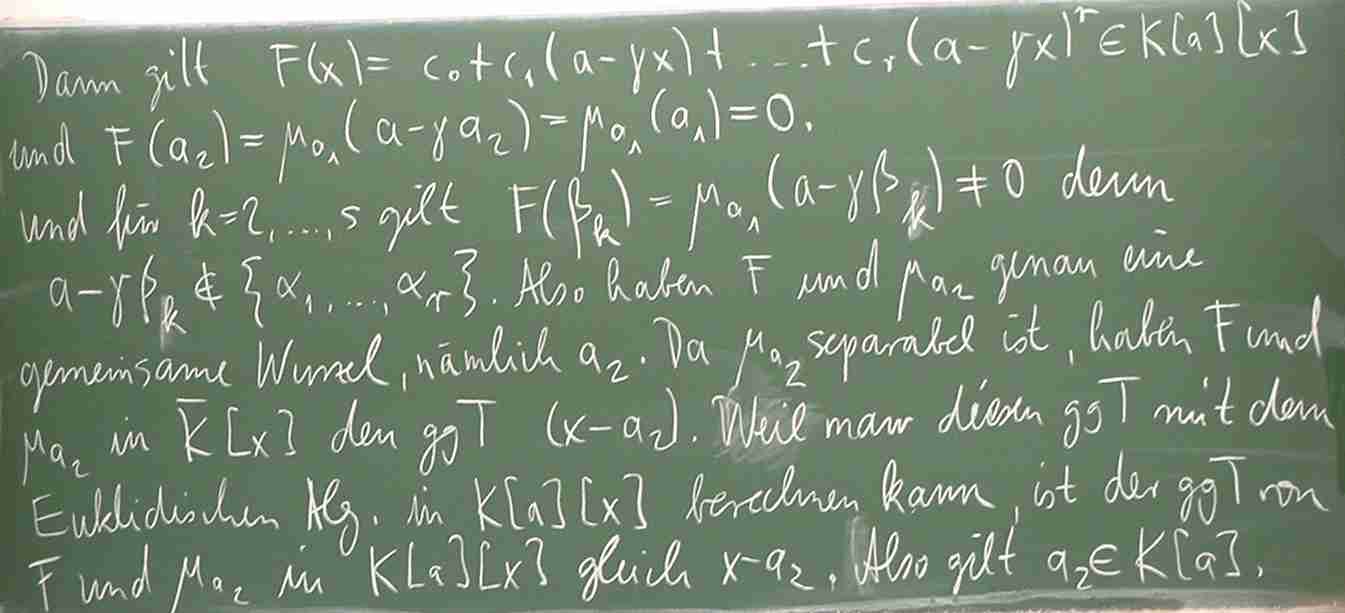 Dann gilt F(x) = c₀+c₁(a-γx)+ ... + cᵣ(a-γx)ʳ ∈ K[a][x]
und F(a₂) = μₐ₁(a-γa₂) = μₐ₁(a₁) = 0.
und für k=2,...,s gilt F(βₖ) = μₐ₁(a-γβₖ) ≠ 0 denn
a-γβₖ ∉ {α₁,...,αᵣ}. Also haben F und μₐ₂ genau eine
gemeinsame Wurzel, nämlich a₂. Da μₐ₂ separabel ist, haben F und
μₐ₂ in K̄[x] den ggT (x-a₂). Weil man diesen ggT mit dem
Euklidischen Alg. in K[a][x] berechnen kann, ist der ggT von
F und μₐ₂ in K[a][x] gleich x-a₂. Also gilt a₂∈K[a].